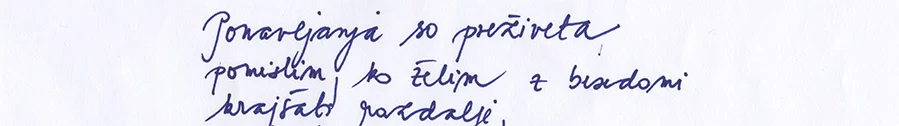 Ponavljanja so preživeta
pomislim, ko želim z besedami
krajšati razdalje,